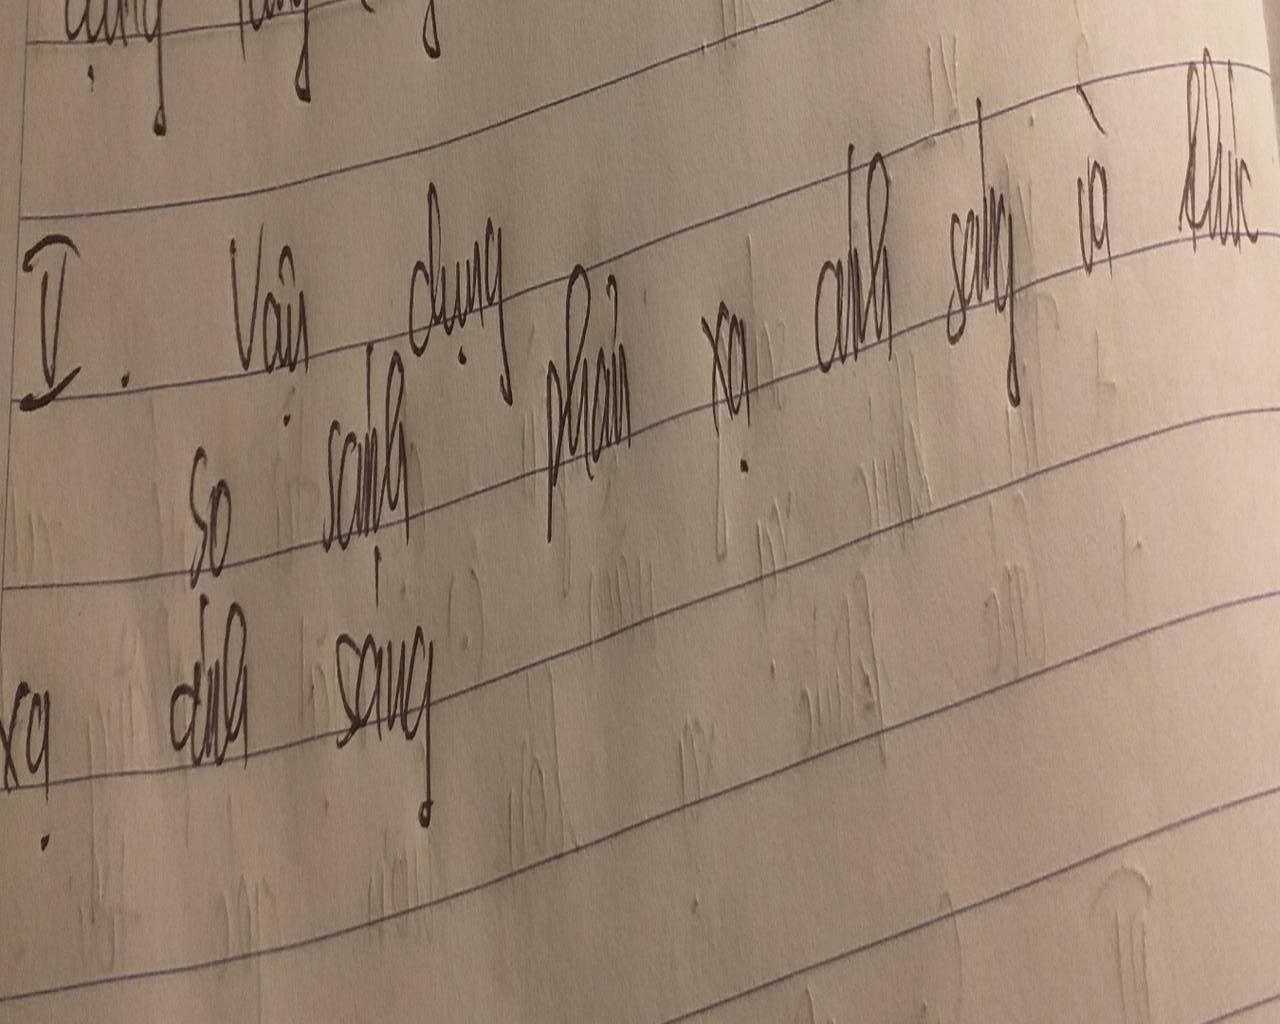 V. Vận dụng
so sánh phản xạ ánh sáng và khúc
xạ ánh sáng